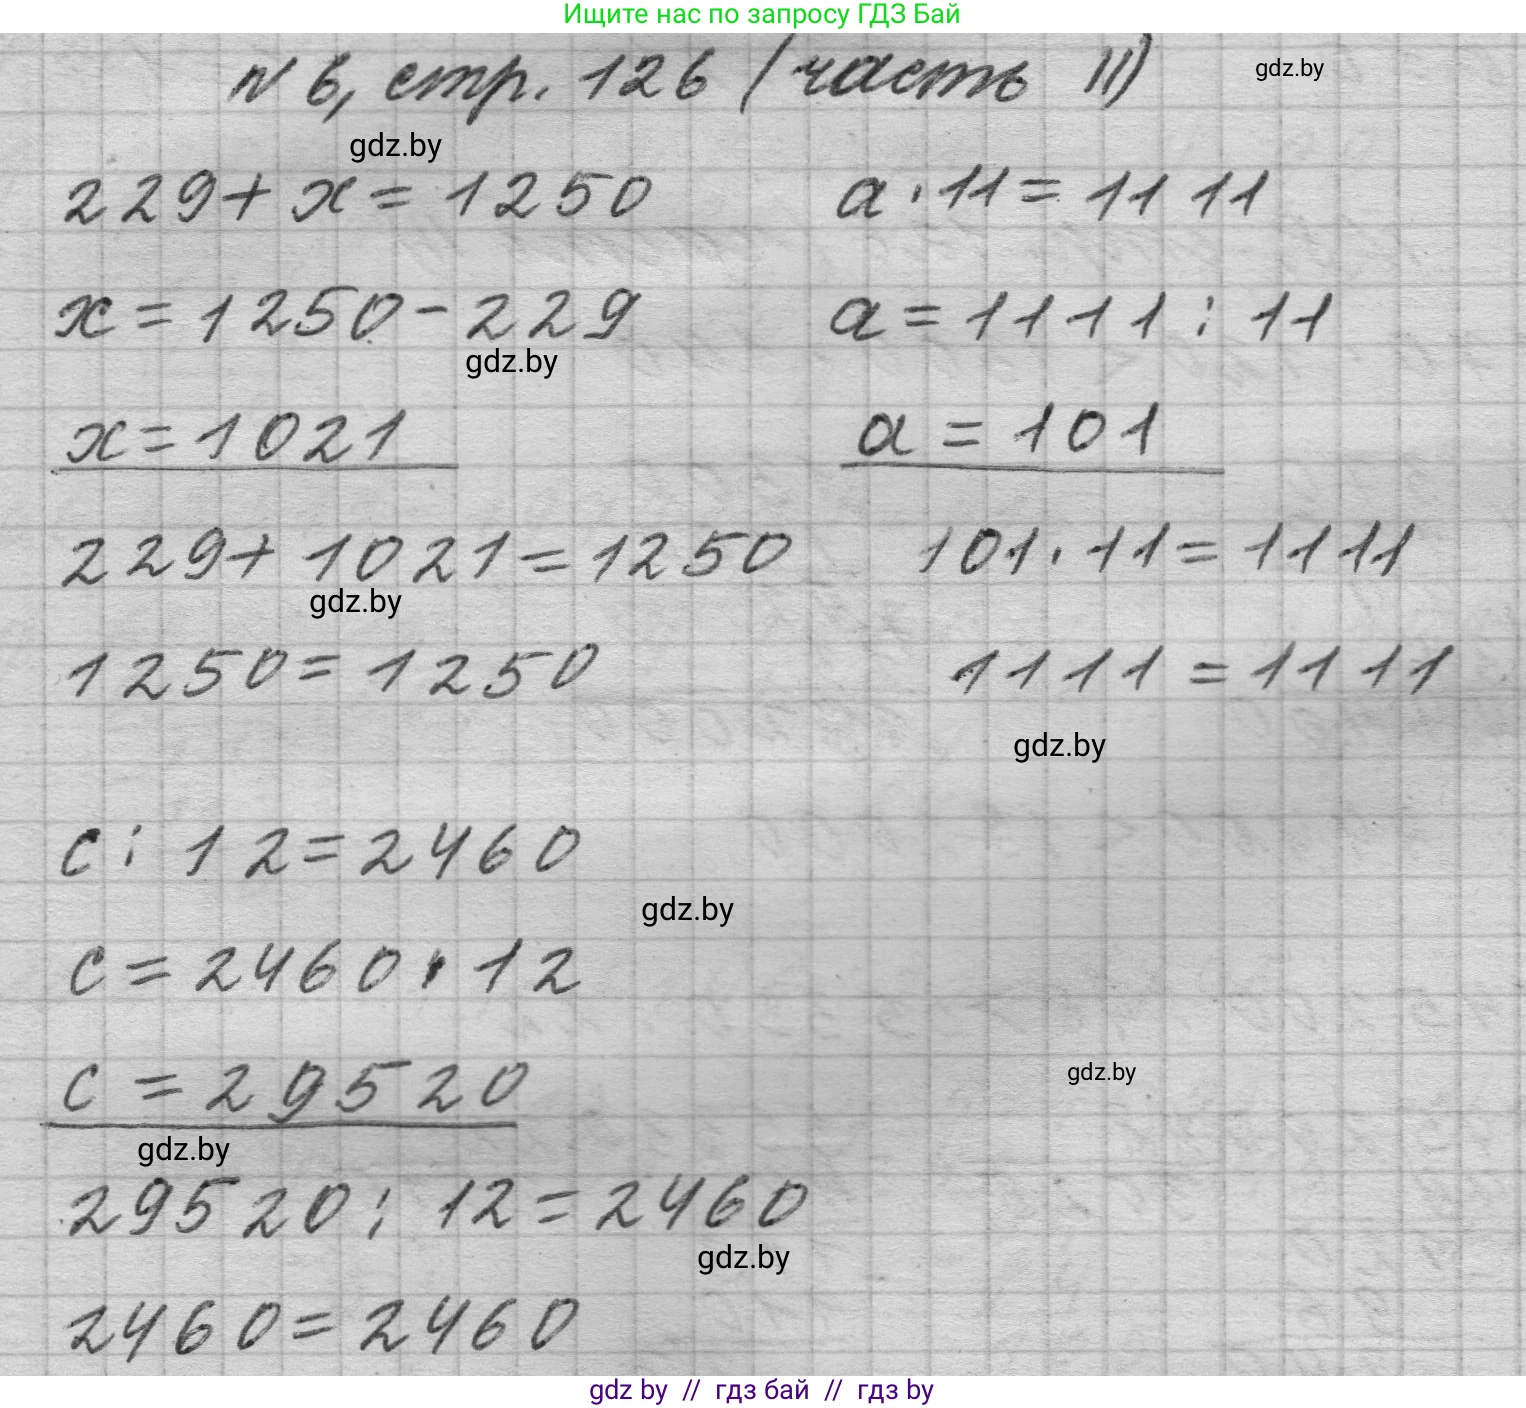 Ищите нас по запросу ГДЗ Бай
N 6, стр. 126 (часть II)
gdz.by
gdz.by
229 + x = 1250
x = 1250 - 229
gdz.by
x = 1021
229 + 1021 = 1250
gdz.by
1250 = 1250
a · 11 = 1111
a = 1111 : 11
a = 101
101 · 11 = 1111
1111 = 1111
gdz.by
c : 12 = 2460
gdz.by
c = 2460 · 12
c = 29520
gdz.by
gdz.by
29520 : 12 = 2460
gdz.by
2460 = 2460
gdz by // гдз бай // гдз by